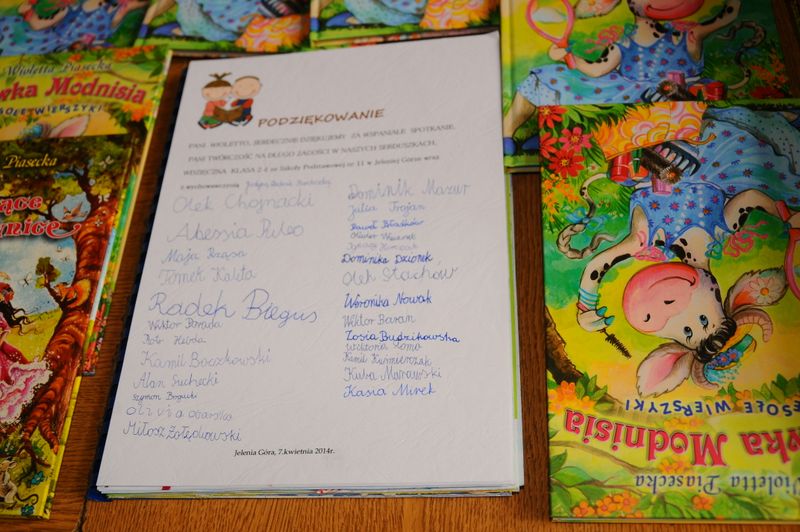 Wioletta Piasecka
wka Modnisia
ESOŁE WIERSZYKI
Piasecka
ące
nice
PODZIĘKOWANIE
PANI WIOLETTO, SERDECZNIE DZIĘKUJEMY ZA WSPANIAŁE SPOTKANIE.
PANI TWÓRCZOŚĆ NA DŁUGO ZAGOŚCI W NASZYCH SERDUSZKACH.
WDZIĘCZNA KLASA 2-4 ze Szkoły Podstawowej nr 11 w Jeleniej Górze wraz
z wychowawczynią
Olek Chojnacki
Alessia Puleo
Maja Rząsa
Tomek Kaleta
Radek Biegus
Wiktor Parada
Piotr Hebda
Kamil Boczkowski
Alan Suchecki
Szymon Bogucki
Oliwia
Miłosz Zołędkowski
Dominik Mazur
Julia Trojan
Paweł
Oliwier
Dominika Dzionek
Olek Stachów
Weronika Nowak
Wiktor Baran
Zosia Budzikowska
Wiktoria
Kamil Kuśmierczak
Kuba Morawski
Kasia Mirek
Jelenia Góra, 7.kwietnia 2014r.
ESOŁE WIERSZYKI
wka Modnisia
Wioletta Piasecka